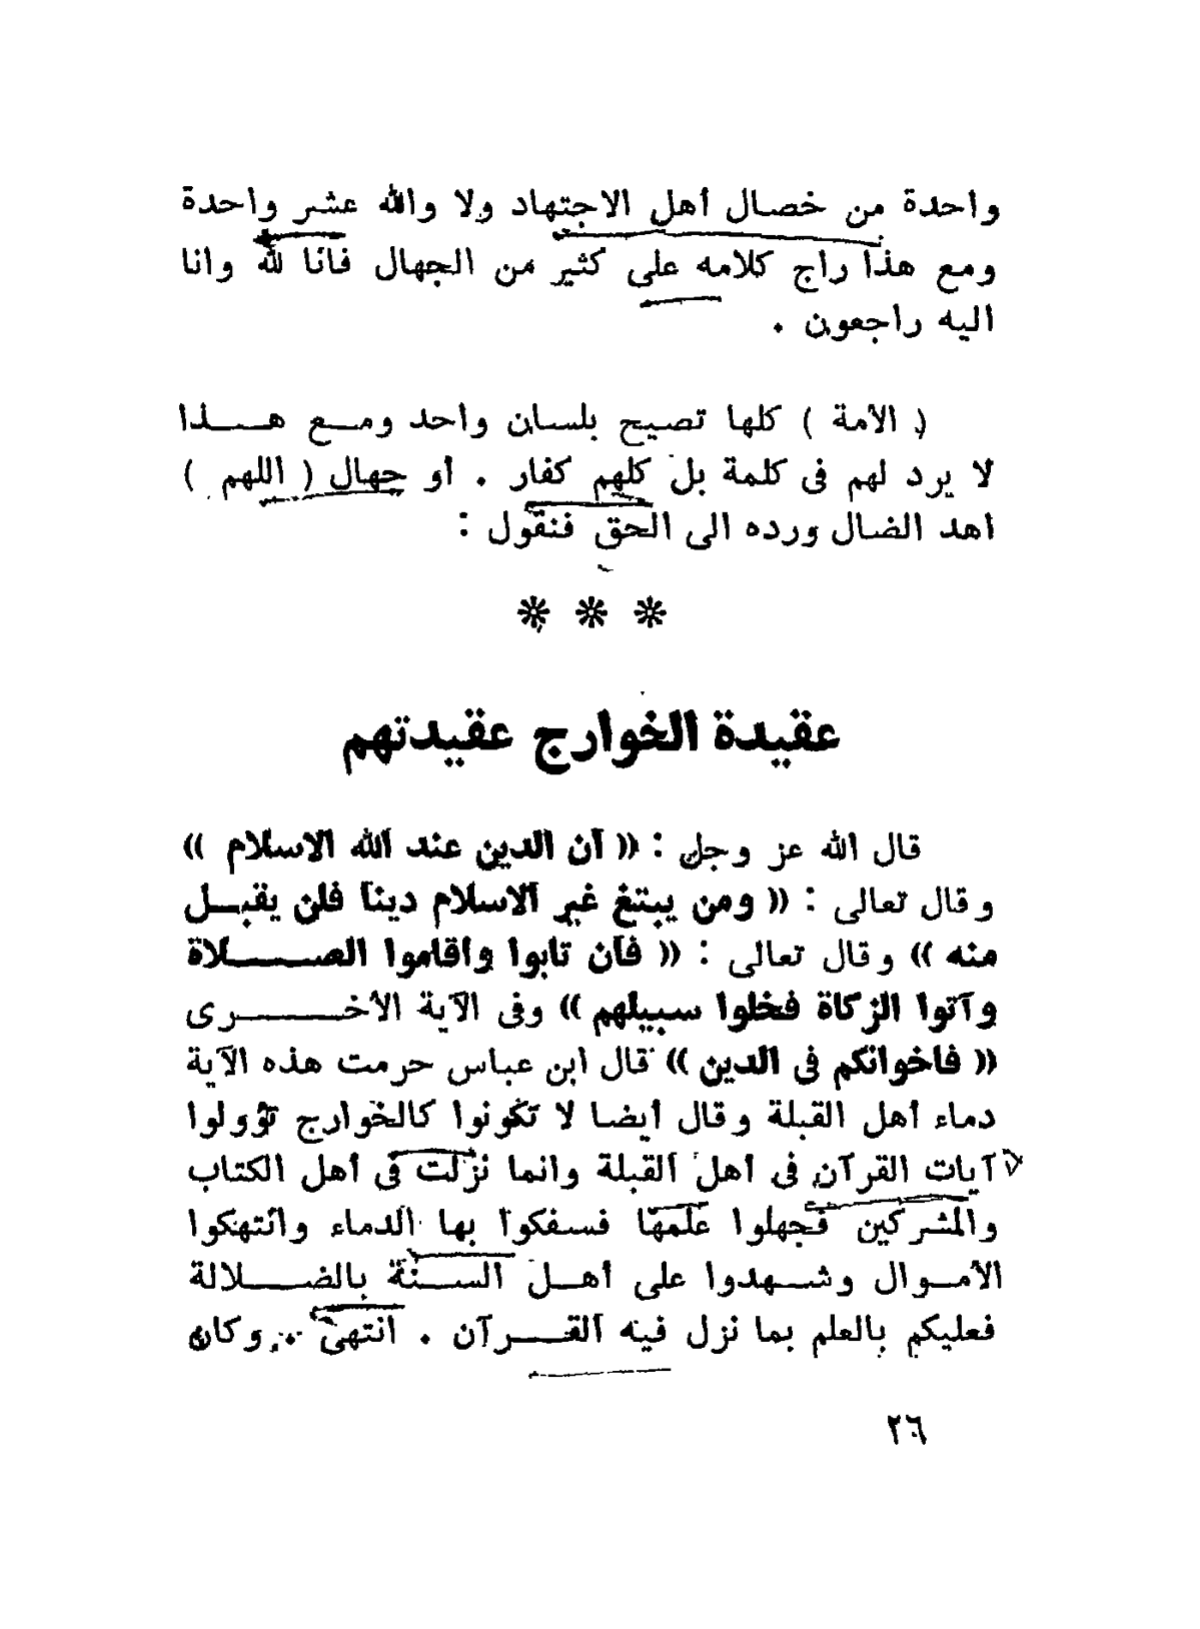 واحدة من خصال أهل الاجتهاد ولا والله عشر واحدة
ومع هذا راج كلامه على كثير من الجهال فانا لله وانا
اليه راجعون .
( الأمة ) كلها تصيح بلسان واحد ومع هذا
لا يرد لهم فى كلمة بل كلهم كفار . أو جهال ( اللهم )
اهد الضال ورده الى الحق فنقول :
عقيدة الخوارج عقيدتهم
قال الله عز وجل : « ان الدين عند الله الاسلام »
وقال تعالى : « ومن يبتغ غير الاسلام دينا فلن يقبل
منه » وقال تعالى : « فان تابوا وأقاموا الصلاة
وآتوا الزكاة فخلوا سبيلهم » وفى الآية الأخرى
« فاخوانكم فى الدين » قال ابن عباس حرمت هذه الآية
دماء أهل القبلة وقال أيضا لا تكونوا كالخوارج تؤولوا
آيات القرآن فى أهل القبلة وانما نزلت فى أهل الكتاب
والمشركين فجهلوا علمها فسفكوا بها الدماء وانتهكوا
الأموال وشهدوا على أهل السنة بالضلالة
فعليكم بالعلم بما نزل فيه القرآن . انتهى .. وكان
٢٦